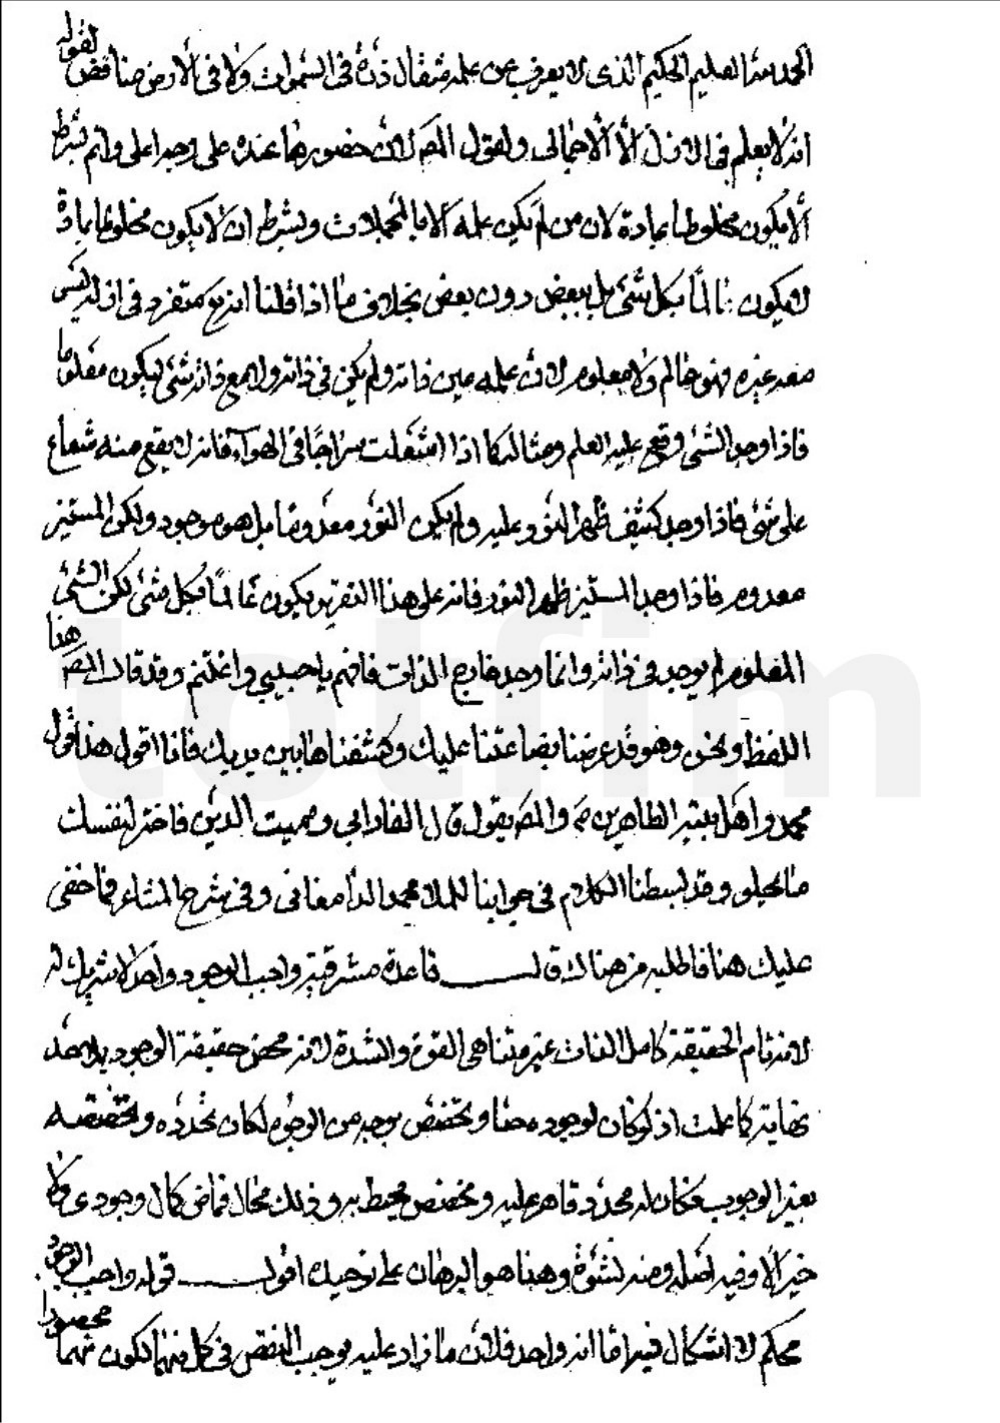 الحمد لله العليم الحكيم الذى لا يعزب عن علمه مثقال ذرة فى السموات ولا فى الارض مناقض لقوله
انه لا يعلم فى الازل الا الاجمالى ولقول المص لان حضورها عنده على وجه اعلى واتم بشرط
الا يكون مخلوطا بمادة لان من لم يكن علمه الا بالمجملات وبشرط ان لا يكون مخلوطا بمادة
لا يكون عالما بكل شئ بل ببعض دون بعض بخلاف ما اذا قلنا انه متفرد فى ازله ليس
معه غيره فهو عالم ولا معلوم لان علمه عين ذاته ولم يكن فى ذاته ولا مع ذاته شئ ليكون معلوما
فاذا وجد الشئ وقع عليه العلم ومثاله كما اذا اشعلت سراجا فى الهواء فانه لا يقع منه شعاع
على شئ فاذا وجد كثيف ظهر النور عليه ولم يكن النور معدوما بل هو موجود ولكن المستنير
معدوم فاذا وجد المستنير ظهر النور فانه على هذا التقرير يكون عالما بكل شئ لكن الشئ
المعلوم لم يوجد فى ذاته وانما وجد خارج الذات فافهم يا حبيبى واغتنم وقد قال المص هذا
اللفظ ونحن وهو قد عرضنا بضاعتنا عليك وكشفناها بين يديك فانا اقول هذا قول
محمد واهل بيته الطاهرين والمص يقول قال الفارابى ومميت الدين فاختر لنفسك
ما يحلو وقد بسطنا الكلام فى جوابنا للملا محمد الدامغانى وفى شرح المشاعر فما خفى
عليك هنا فاطلبه من هناك قال قاعدة مشرقية واجب الوجود واحد لا شريك له
لانه تام الحقيقة كامل الذات غير متناهى القوة والشدة لانه محض حقيقة الوجود بلا حد
نهاية كما علمت اذ لو كان لوجوده حد او تخصص بوجه من الوجوه لكان تحدده وتخصصه
بغير الوجود فكان له محدد قاهر عليه ومخصص محيط به وذلك محال فما من كمال وجودى ولا
خير الا وفيه اصله ومنه نشؤه وهذا هو البرهان على توحيده اقول قوله واجب الوجود
محكم لا اشكال فيه اما انه واحد فلان ما زاد عليه يوجب النقص فى كل منهما لكون محصورا
totfim